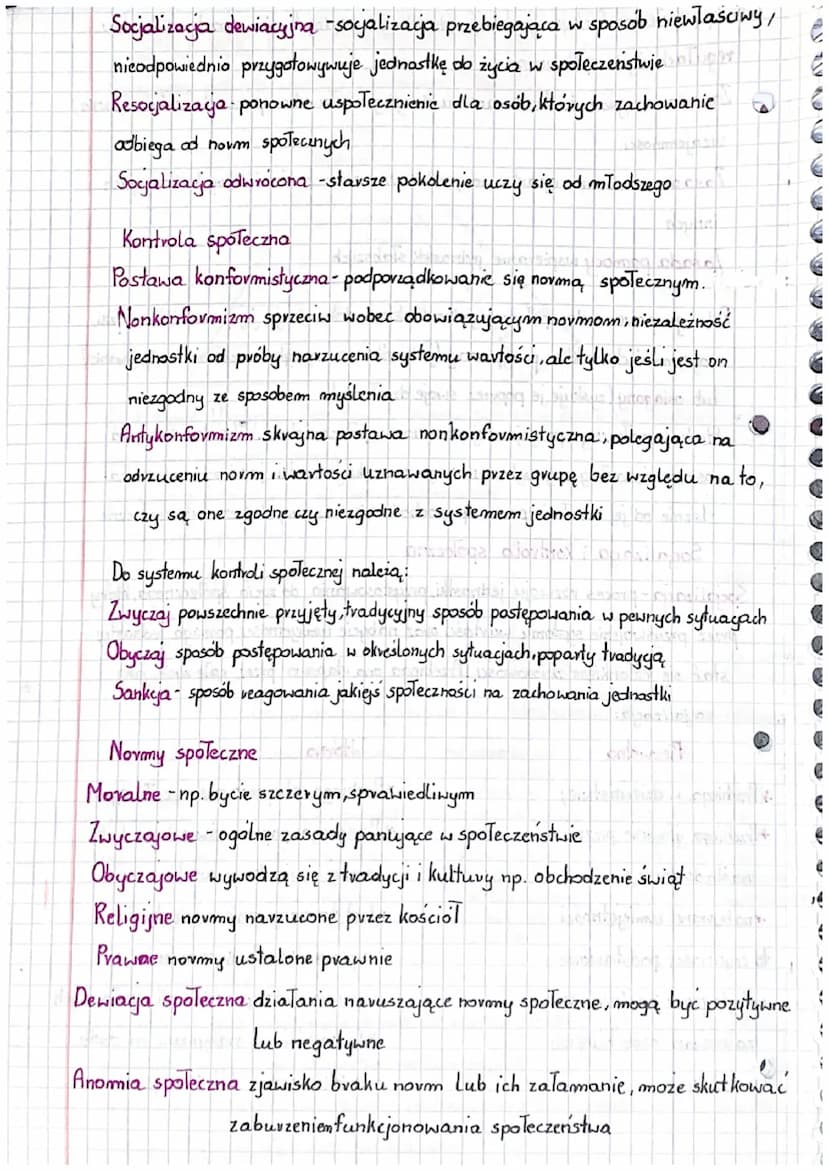 Socjalizacja dewiacyjna - socjalizacja przebiegająca w sposób niewłaściwy,
nieodpowiednio przygotowywuje jednostkę do życia w społeczeństwie
Resocjalizacja - ponowne uspołecznienie dla osób, których zachowanie
odbiega od norm społecznych
Socjalizacja odwrócona - starsze pokolenie uczy się od młodszego
Kontrola społeczna
Postawa konformistyczna - podporządkowanie się normą społecznym.
Nonkonformizm sprzeciw wobec obowiązującym normom, niezależność
jednostki od próby narzucenia systemu wartości, ale tylko jeśli jest on
niezgodny ze sposobem myślenia
Antykonformizm skrajna postawa nonkonformistyczna, polegająca na
odrzuceniu norm i wartości uznawanych przez grupę bez względu na to,
czy są one zgodne czy niezgodne z systemem jednostki
Do systemu kontroli społecznej należą:
Zwyczaj powszechnie przyjęty, tradycyjny sposób postępowania w pewnych sytuacjach
Obyczaj sposób postępowania w określonych sytuacjach, poparty tradycją
Sankcja - sposób reagowania jakiejś społeczności na zachowania jednostki
Normy społeczne
Moralne - np. bycie szczerym, sprawiedliwym
Zwyczajowe - ogólne zasady panujące w społeczeństwie
Obyczajowe wywodzą się z tradycji i kultury np. obchodzenie świąt
Religijne normy narzucone przez kościół
Prawne normy ustalone prawnie
Dewiacja społeczna działania naruszające normy społeczne, mogą być pozytywne
lub negatywne
Anomia społeczna zjawisko braku norm lub ich załamanie, może skutkować
zaburzeniem funkcjonowania społeczeństwa